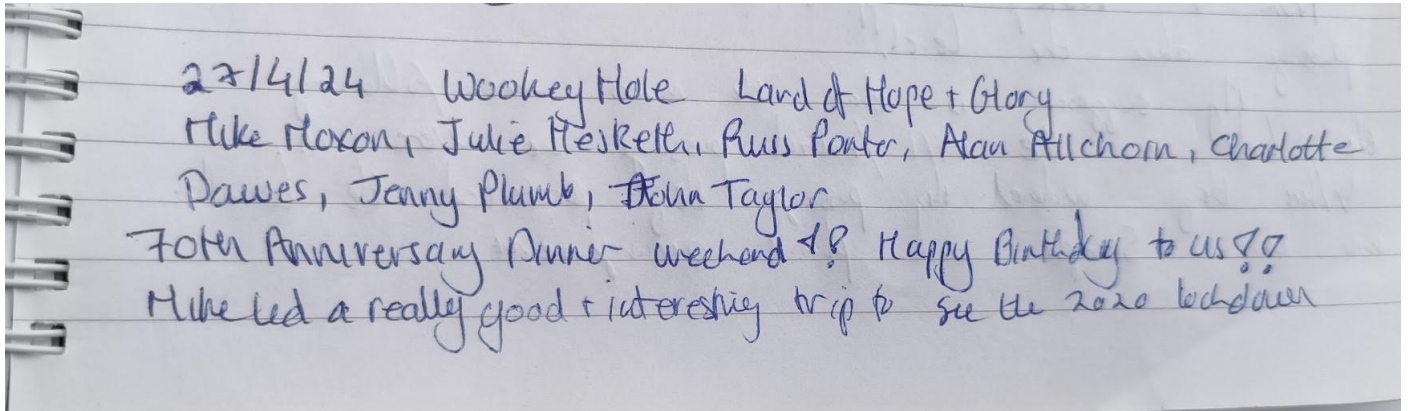 27/4/24 Wookey Hole Land of Hope + Glory
Mike Moxon, Julie Hesketh, Russ Porter, Alan Allchorn, Charlotte
Dawes, Jenny Plumb, John Taylor
70th Anniversary Dinner weekend!! Happy Birthday to us!!
Mike led a really good + interesting trip to see the 2020 lockdown